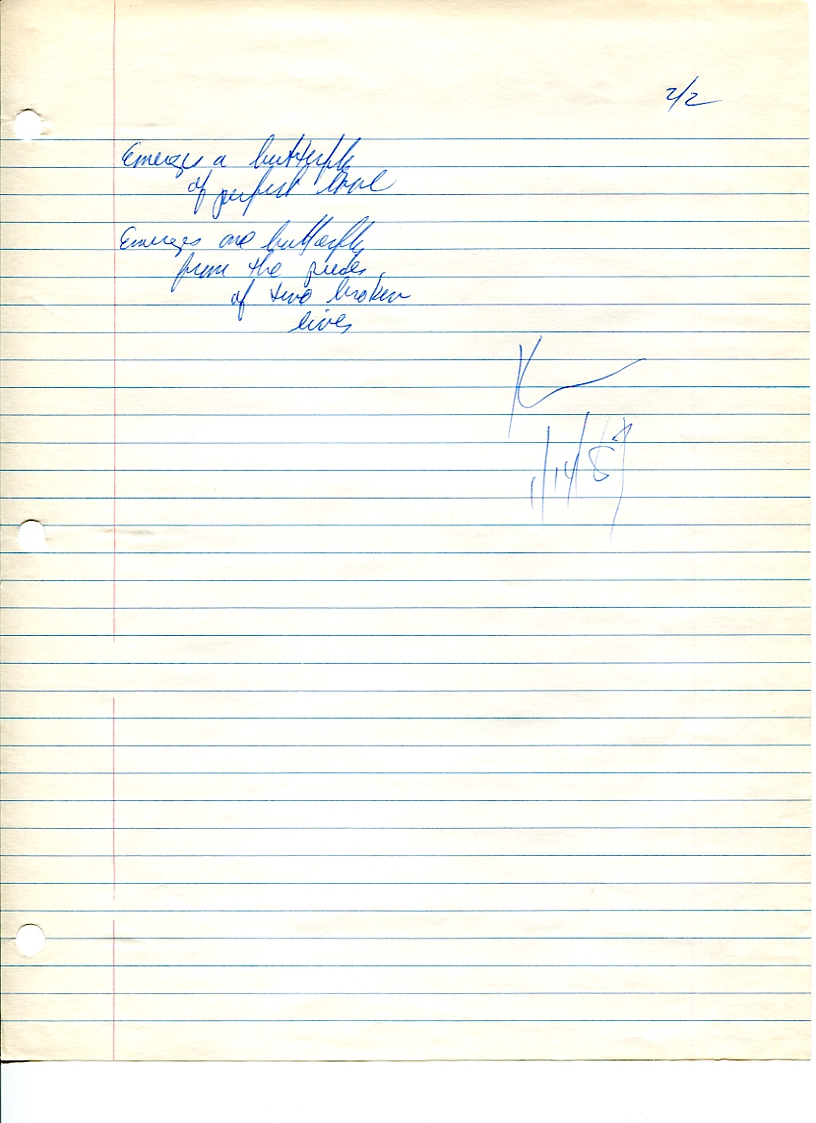 2/2
Emerges a butterfly
of perfect love
Emerges one butterfly
from the pieces
of two broken
lives
K
1/14/87